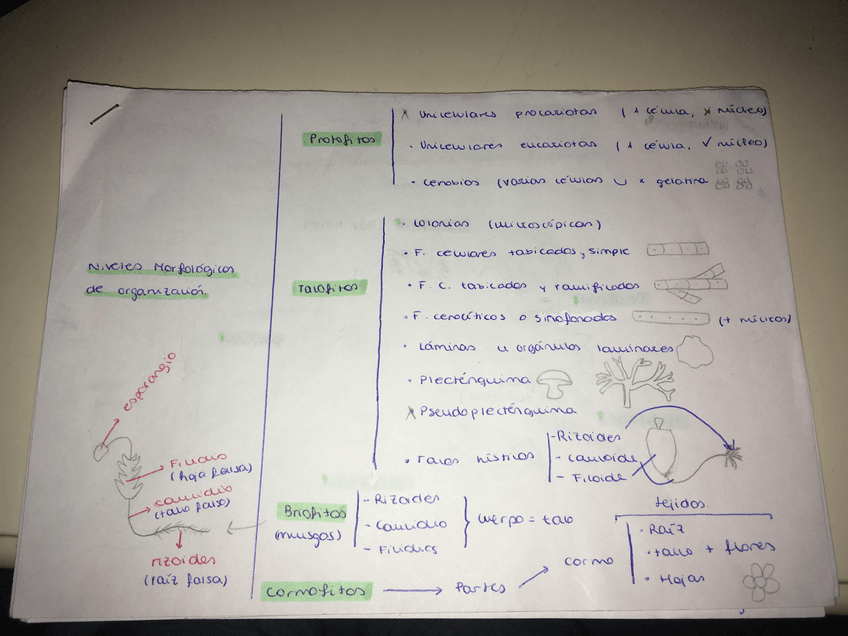 Niveles Morfológicos
de organización
Protofitos
x Unicelulares procariotas (1 célula, x núcleo)
· Unicelulares eucariotas (1 célula, ✓ núcleo)
· Cenobios (varias células ∪ x gelatina
Talofitos
· Colonias (microscópicas)
· F. celulares tabicados, simple
· F. C. tabicados y ramificados
· F. cenocíticos o sifonados (+ núcleos)
· Láminas u orgánulos laminares
· Plecténquima
x Pseudoplecténquima
· Talos hísticos
- Rizoides
- Cauloide
- Filoide
Briofitos
(musgos)
- Rizoides
- Caulidio
- Filidios
cuerpo = talo
Cormofitos
Partes
Cormo
tejidos
· Raíz
· tallo + flores
· Hojas
esporangio
Filidio
(hoja falsa)
caulidio
(tallo falso)
rizoides
(raíz falsa)